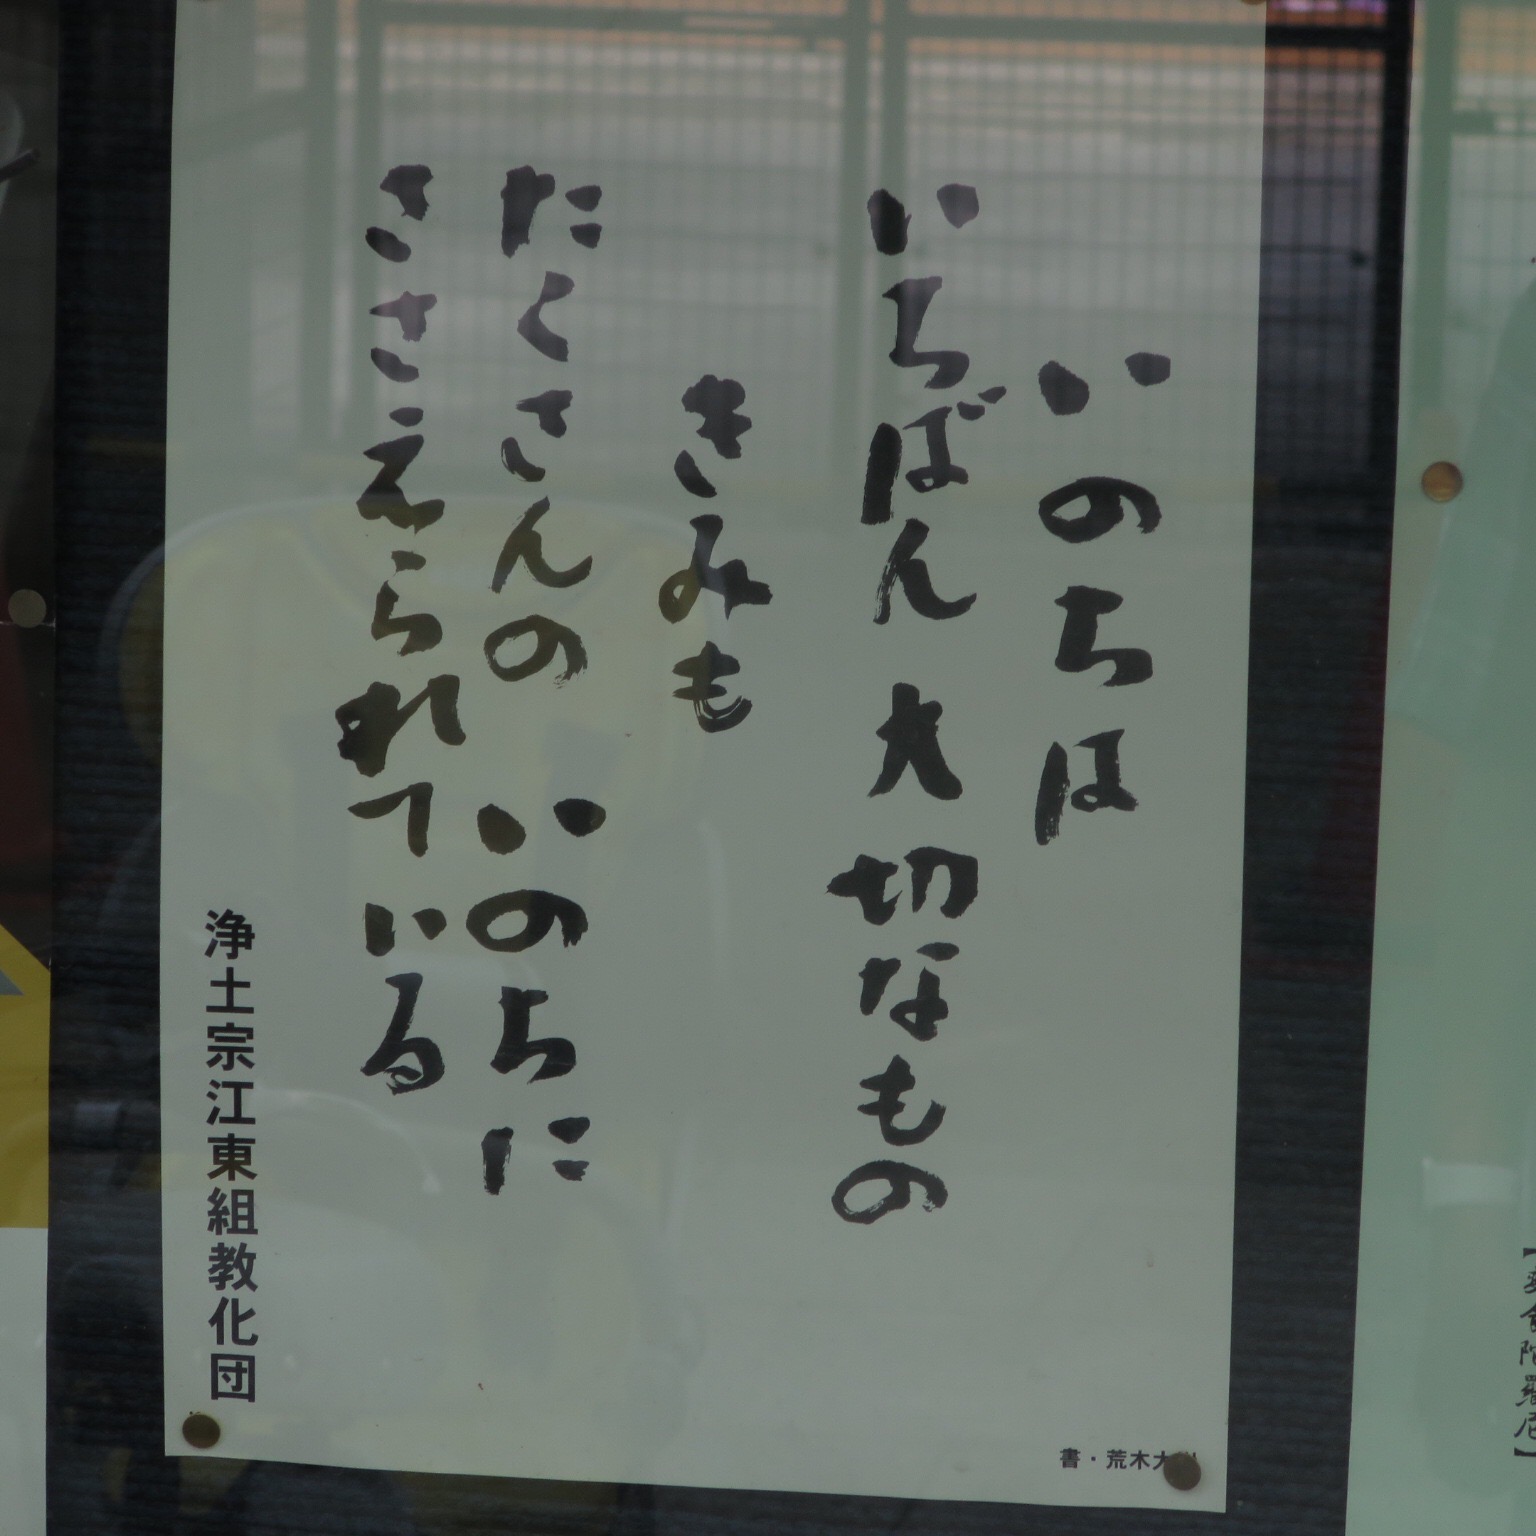 いのちは
いちばん大切なもの
きみも
たくさんのいのちに
ささえられている
浄土宗江東組教化団
書・荒木大